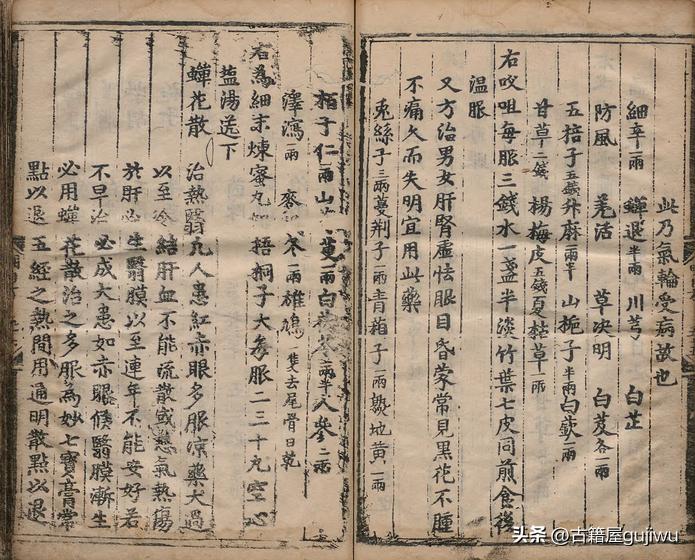 此乃氣輪受病故也
細辛一兩 蟬退半兩 川芎 白芷
防風 羌活 草决明 白芨各二兩
五掊子五錢 升麻二兩半 山梔子半兩 白歛一兩
甘草二錢 楊梅皮五錢 夏枯草一兩
右㕮咀每服三錢水一盞半淡竹葉七皮同煎食後
温服
又方治男女肝腎虛怯眼目昏蒙常見黑花不腫
不痛久而失明宜用此藥
兎絲子二兩 蔓荆子二兩 青葙子一兩 熟地黄一兩
栢子仁一兩 山 一兩 白 兩半 人參二兩
澤瀉一兩 麥 冬一兩 雄鳩 隻去尾骨日乾
右為細末煉蜜丸 梧桐子大每服二三十丸空心
盐湯送下
蟬花散 治熱翳凡人患紅赤眼多服凉藥太過
以至冷 結肝血不能流散或 氣熱傷
於肝 生翳膜以至連年不能安好若
不早治 必成大患如赤眼候翳膜漸生
必用蟬 花散治之多服為妙七寶膏常
點以退 五經之熱間用通明散點以退
头条 @古籍屋gujiwu